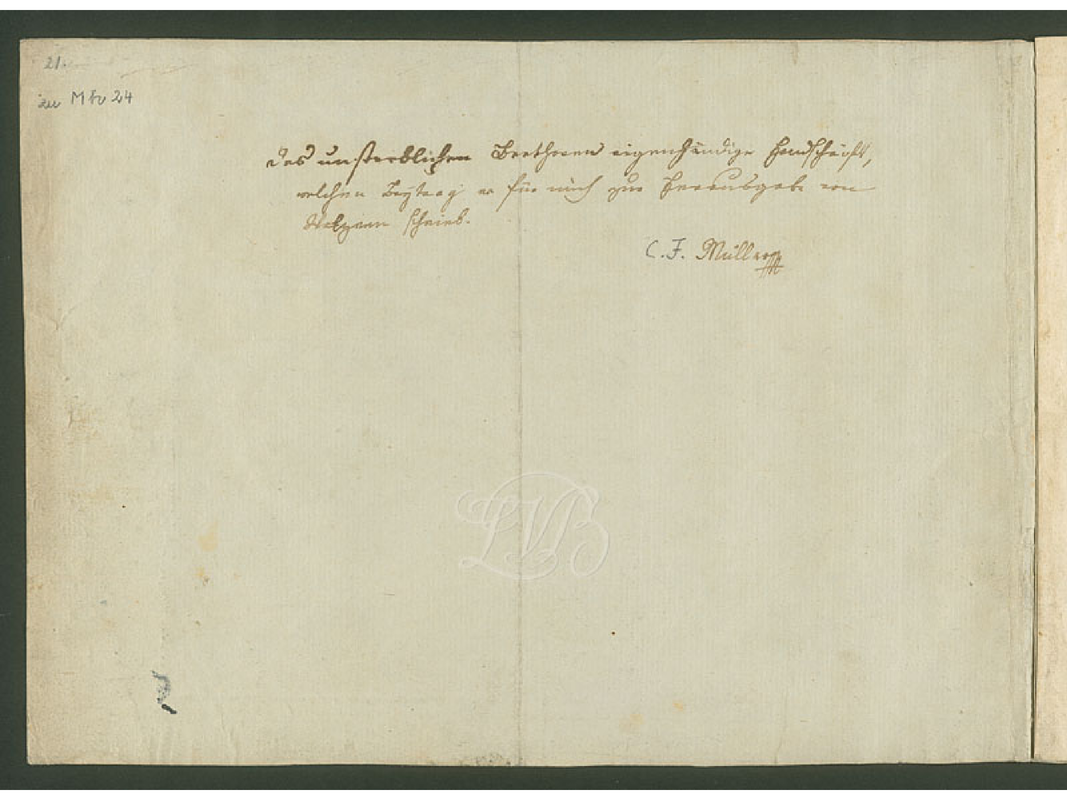 21.
zu M Bv 24
Des unsterblichen Beethovens eigenhändige Handschrift,
welchen Beytrag er für mich zur Herausgabe von
Walzern schrieb.
C. F. Müller
LVB